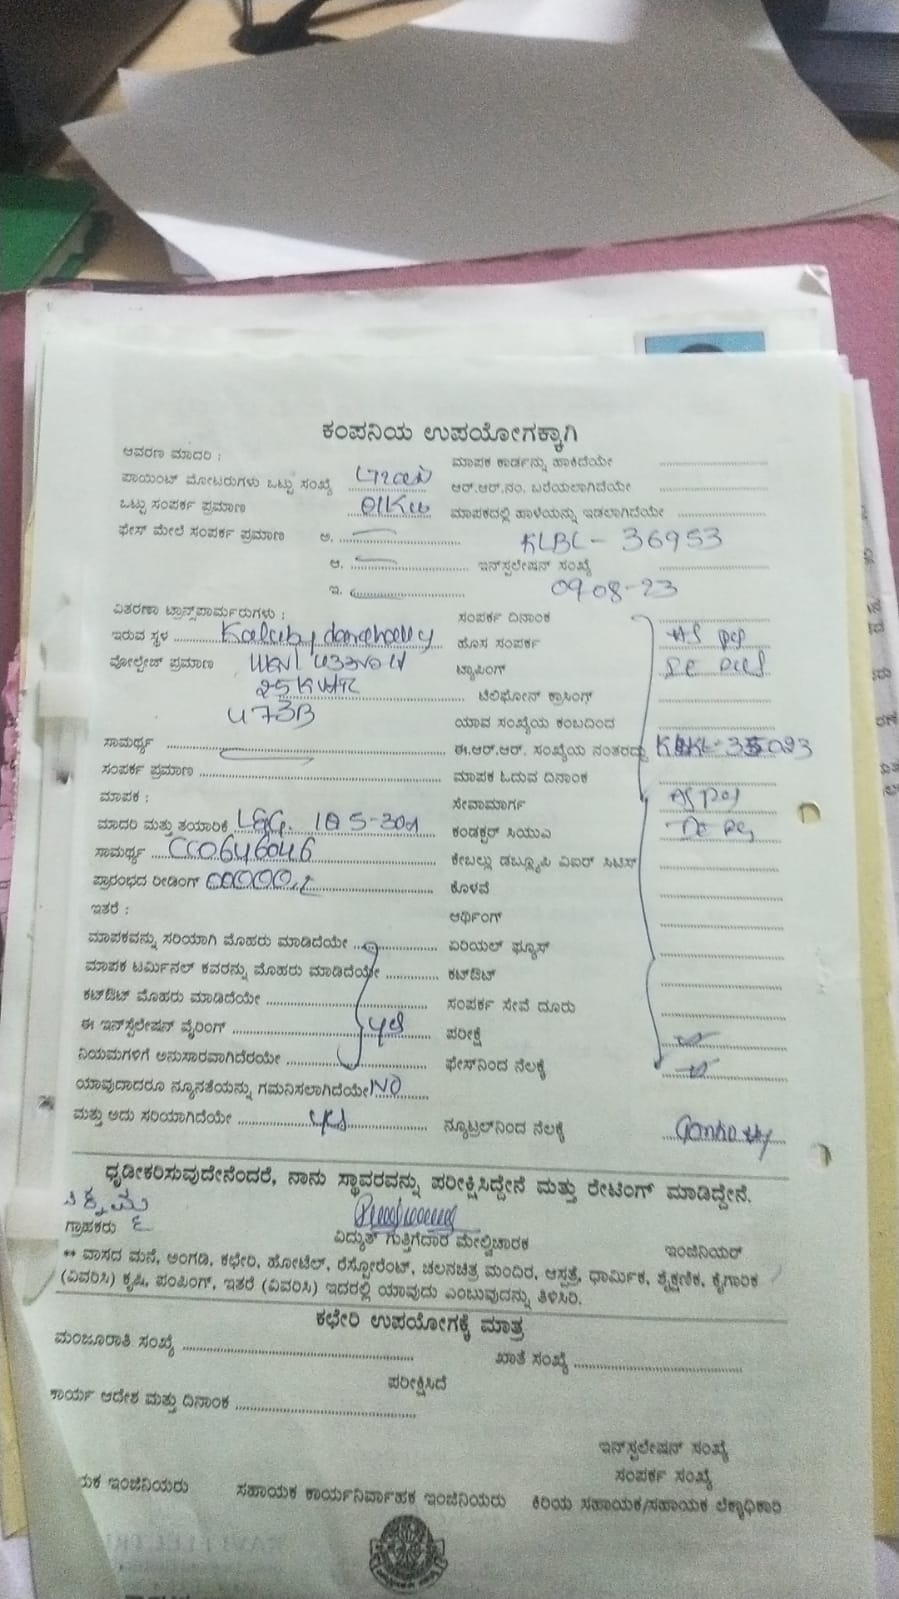 ಕಂಪನಿಯ ಉಪಯೋಗಕ್ಕಾಗಿ
ಆವರಣ ಮಾದರಿ :
ಮಾಪಕ ಕಾರ್ಡನ್ನು ಹಾಕಿದೆಯೇ
ಪಾಯಿಂಟ್ ಮೋಟರುಗಳು ಒಟ್ಟು ಸಂಖ್ಯೆ
ಆರ್.ಆರ್.ನಂ. ಬರೆಯಲಾಗಿದೆಯೇ
ಒಟ್ಟು ಸಂಪರ್ಕ ಪ್ರಮಾಣ
ಮಾಪಕದಲ್ಲಿ ಹಾಳೆಯನ್ನು ಇಡಲಾಗಿದೆಯೇ
ಫೇಸ್ ಮೇಲೆ ಸಂಪರ್ಕ ಪ್ರಮಾಣ ಅ. KLBL - 36953
ಆ. ಇನ್‌ಸ್ಟಲೇಷನ್ ಸಂಖ್ಯೆ
ಇ. 09-08-23
ವಿತರಣಾ ಟ್ರಾನ್ಸ್‌ಫಾರ್ಮರುಗಳು :
ಸಂಪರ್ಕ ದಿನಾಂಕ
ಇರುವ ಸ್ಥಳ
ಹೊಸ ಸಂಪರ್ಕ
ವೋಲ್ಟೇಜ್ ಪ್ರಮಾಣ
ಟ್ಯಾಪಿಂಗ್
25 KVA
ಟೆಲಿಫೋನ್ ಕ್ರಾಸಿಂಗ್
473B
ಯಾವ ಸಂಖ್ಯೆಯ ಕಂಬದಿಂದ
ಸಾಮರ್ಥ್ಯ
ಈ.ಆರ್.ಆರ್. ಸಂಖ್ಯೆಯ ನಂತರದ್ದು
ಸಂಪರ್ಕ ಪ್ರಮಾಣ
ಮಾಪಕ ಓದುವ ದಿನಾಂಕ
ಮಾಪಕ :
ಸೇವಾಮಾರ್ಗ
ಮಾದರಿ ಮತ್ತು ತಯಾರಿಕೆ L&G. 10 5-30A
ಕಂಡಕ್ಟರ್ ಸಿಯುಎ
ಸಾಮರ್ಥ್ಯ CC0646046
ಕೇಬಲ್ಲು ಡಬ್ಲ್ಯೂಪಿ ವಿಐರ್ ಸಿಟಿಸ್
ಪ್ರಾರಂಭದ ರೀಡಿಂಗ್
ಕೊಳವೆ
ಇತರೆ :
ಆರ್ಥಿಂಗ್
ಮಾಪಕವನ್ನು ಸರಿಯಾಗಿ ಮೊಹರು ಮಾಡಿದೆಯೇ
ಏರಿಯಲ್ ಫ್ಯೂಸ್
ಮಾಪಕ ಟರ್ಮಿನಲ್ ಕವರನ್ನು ಮೊಹರು ಮಾಡಿದೆಯೇ
ಕಟ್‌ಔಟ್
ಕಟ್‌ಔಟ್ ಮೊಹರು ಮಾಡಿದೆಯೇ
ಸಂಪರ್ಕ ಸೇವೆ ದೂರು
ಈ ಇನ್‌ಸ್ಟೆಲೇಷನ್ ವೈರಿಂಗ್ yes
ಪರೀಕ್ಷೆ
ನಿಯಮಗಳಿಗೆ ಅನುಸಾರವಾಗಿದೆರಯೇ
ಫೇಸ್‌ನಿಂದ ನೆಲಕ್ಕೆ
ಯಾವುದಾದರೂ ನ್ಯೂನತೆಯನ್ನು ಗಮನಿಸಲಾಗಿದೆಯೇ NO
ಮತ್ತು ಅದು ಸರಿಯಾಗಿದೆಯೇ yes
ನ್ಯೂಟ್ರಲ್‌ನಿಂದ ನೆಲಕ್ಕೆ
ಧೃಡೀಕರಿಸುವುದೇನೆಂದರೆ, ನಾನು ಸ್ಥಾವರವನ್ನು ಪರೀಕ್ಷಿಸಿದ್ದೇನೆ ಮತ್ತು ರೇಟಿಂಗ್ ಮಾಡಿದ್ದೇನೆ.
ಗ್ರಾಹಕರು
ವಿದ್ಯುತ್ ಗುತ್ತಿಗೆದಾರ ಮೇಲ್ವಿಚಾರಕ
ಇಂಜಿನಿಯರ್
** ವಾಸದ ಮನೆ, ಅಂಗಡಿ, ಕಛೇರಿ, ಹೋಟೆಲ್, ರೆಸ್ಟೋರೆಂಟ್, ಚಲನಚಿತ್ರ ಮಂದಿರ, ಆಸ್ಪತ್ರೆ, ಧಾರ್ಮಿಕ, ಶೈಕ್ಷಣಿಕ, ಕೈಗಾರಿಕ
(ವಿವರಿಸಿ) ಕೃಷಿ, ಪಂಪಿಂಗ್, ಇತರೆ (ವಿವರಿಸಿ) ಇದರಲ್ಲಿ ಯಾವುದು ಎಂಬುವುದನ್ನು ತಿಳಿಸಿರಿ.
ಕಛೇರಿ ಉಪಯೋಗಕ್ಕೆ ಮಾತ್ರ
ಮಂಜೂರಾತಿ ಸಂಖ್ಯೆ
ಖಾತೆ ಸಂಖ್ಯೆ
ಪರೀಕ್ಷಿಸಿದೆ
ಕಾರ್ಯ ಆದೇಶ ಮತ್ತು ದಿನಾಂಕ
ಇನ್‌ಸ್ಟಲೇಷನ್ ಸಂಖ್ಯೆ
ಸಂಪರ್ಕ ಸಂಖ್ಯೆ
ಯಕ ಇಂಜಿನಿಯರು
ಸಹಾಯಕ ಕಾರ್ಯನಿರ್ವಾಹಕ ಇಂಜಿನಿಯರು
ಕಿರಿಯ ಸಹಾಯಕ/ಸಹಾಯಕ ಲೆಕ್ಕಾಧಿಕಾರಿ